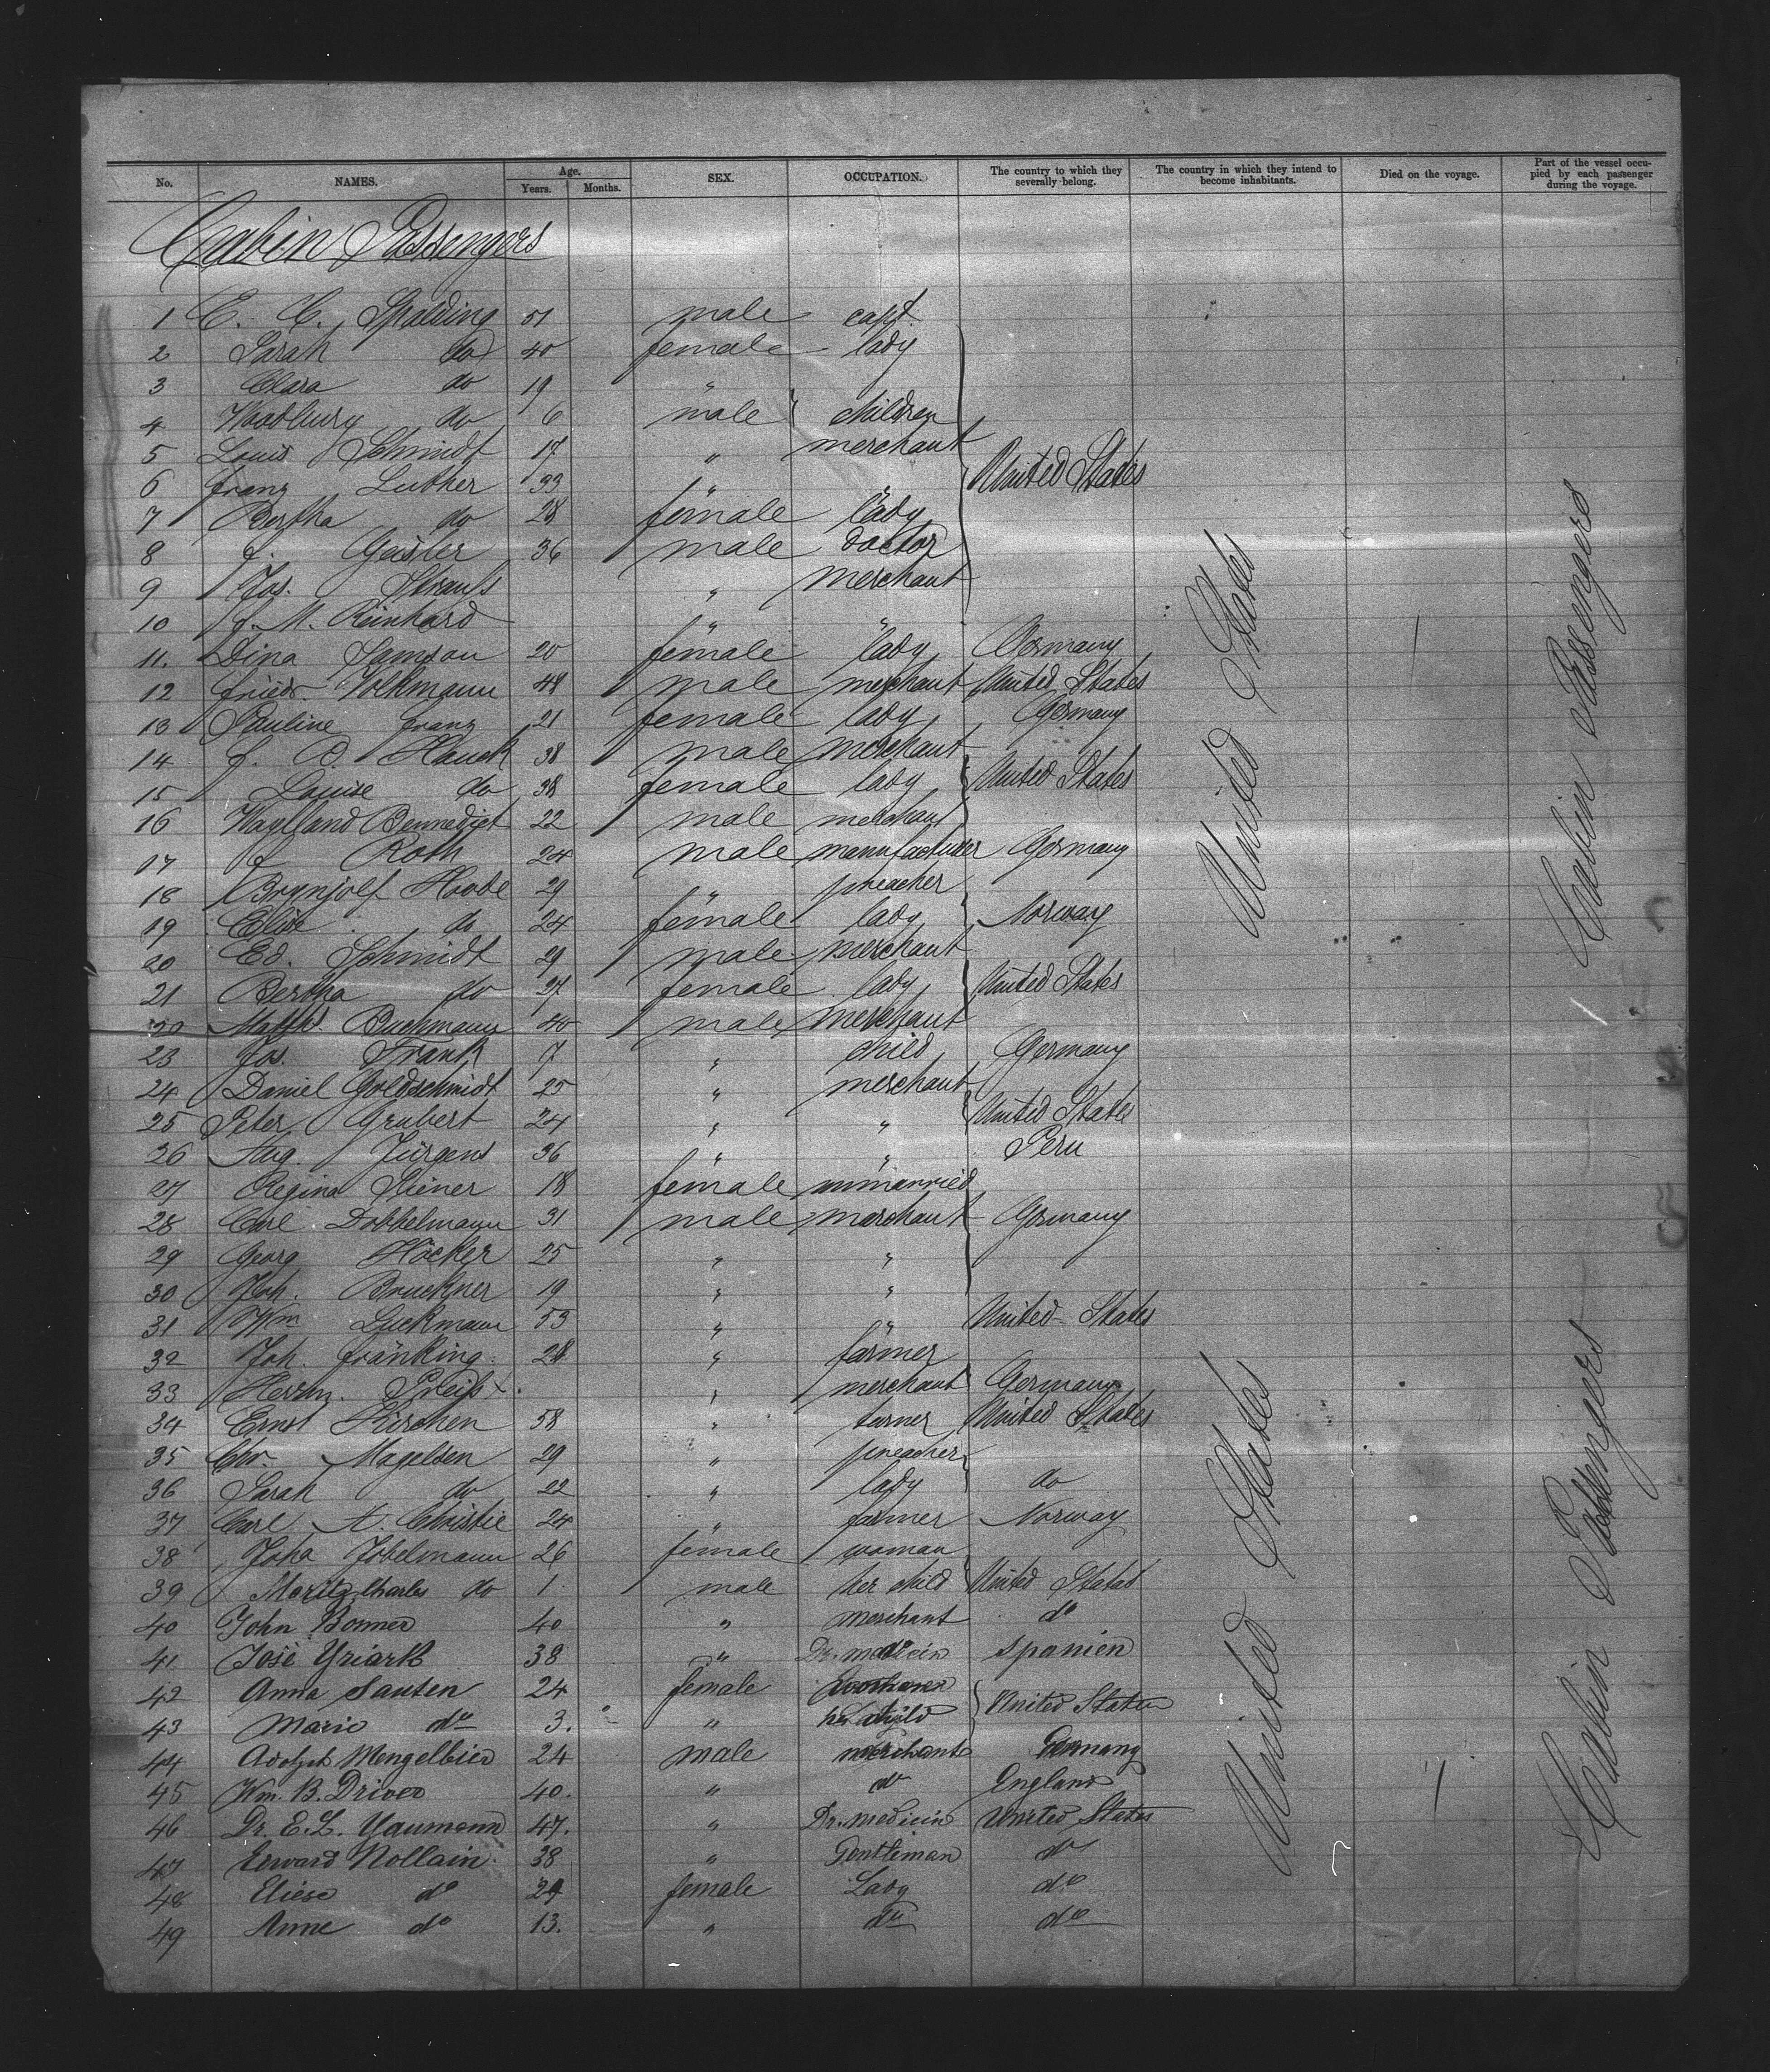 No. NAMES. Age. Years. Months. SEX. OCCUPATION. The country to which they severally belong. The country in which they intend to become inhabitants. Died on the voyage. Part of the vessel occupied by each passenger during the voyage.
Cabin Passengers
1 E. C. Spalding 51 male capt.
2 Sarah do 40 female lady
3 Clara do 19 "
4 Woodbury do 6 male children
5 Louis Schmidt 17 " merchant
6 Franz Luther 33 " " United States
7 Bertha do 28 female lady
8 F. Geisler 36 male doctor
9 Jos. Strauss " merchant
10 F. M. Reinhard " "
11. Dina Samson 20 female lady Germany
12 Friedr Volkmann 48 male merchant United States
13 Pauline Franz 21 female lady Germany
14 F. A. Hauck 38 male merchant
15 Louise do 38 female lady United States
16 Waylland Bennedict 22 male merchant
17 F Roth 24 male manufacturer Germany
18 Brynjolf Hovde 29 " preacher
19 Elise do 24 female lady Norway
20 Ed. Schmidt 29 male merchant
21 Bertha do 27 female lady United States
Buchmann 40 male merchant
23 Jos. Frank 7 " child Germany
24 Daniel Goldschmidt 25 " merchant
25 Peter Grubert 24 " " United States
26 Aug. Jürgens 36 " " Peru
27 Regina Stiener 18 female unmarried
28 Carl Dobbelmann 31 male merchant Germany
29 Georg Höcker 25 " "
30 Joh. Bruckner 19 " "
31 Wm Luckmann 53 " " United States
32 Joh. Fränking 28 " farmer
33 Herrm. Preiss x . " merchant Germany
34 Ernst Kirchen 58 " turner United States
35 Chr. Magelsen 29 " preacher
36 Sarah do 22 " lady do
37 Carl A. Christie 24 " farmer Norway
38 Joha Jobelmann 26 female woman
39 Moritz Charles do 1 male her child United States
40 John Bonner 40 " merchant do
41 José Yriark 38 " Dr. medicin Spanien
42 Anna Sausen 24 female United States
43 Marie do 3. " her child
44 Adolph Mengelbier 24 male merchant Germany
45 Wm. B. Driver 40. " do England
46 Dr. E. L. Yaumann 47. " Dr. medicin United States
47 Edward Nollain 38 " Gentleman do
48 Eliese do 29 female Lady do
49 Anne do 13. " do do
United States
Cabin Passengers
United States
Cabin Passengers